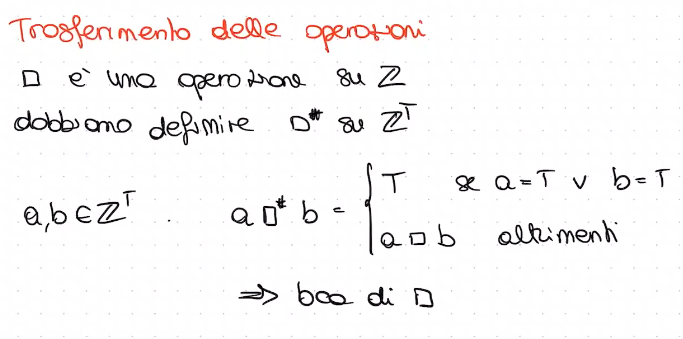 Trasferimento delle operazioni
□ è una operazione su ℤ
dobbiamo definire □# su ℤ^T
a,b ∈ ℤ^T . a □# b = { T se a=T ∨ b=T
a □ b altrimenti
⇒ bca di □